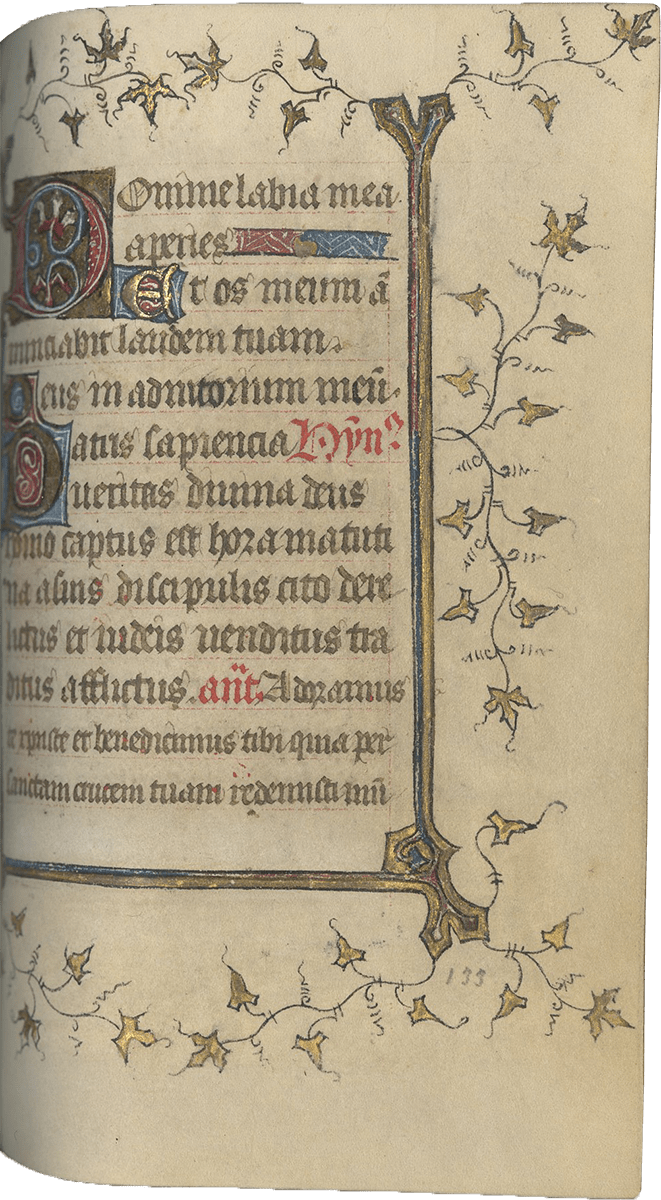 Domine labia mea
aperies
Et os meum ā
nunciabit laudem tuam
Deus in adiutorium meū
Patris sapiencia Hỹnꝰ
ueritas diuina deus
homo captus est hora matuti
na a suis discipulis cito dere
lictus et iudeis uenditus tra
ditus afflictus. an̄t. Adoramus
te xp̄iste et benedicimus tibi quia per
sanctam crucem tuam redemisti mū
133